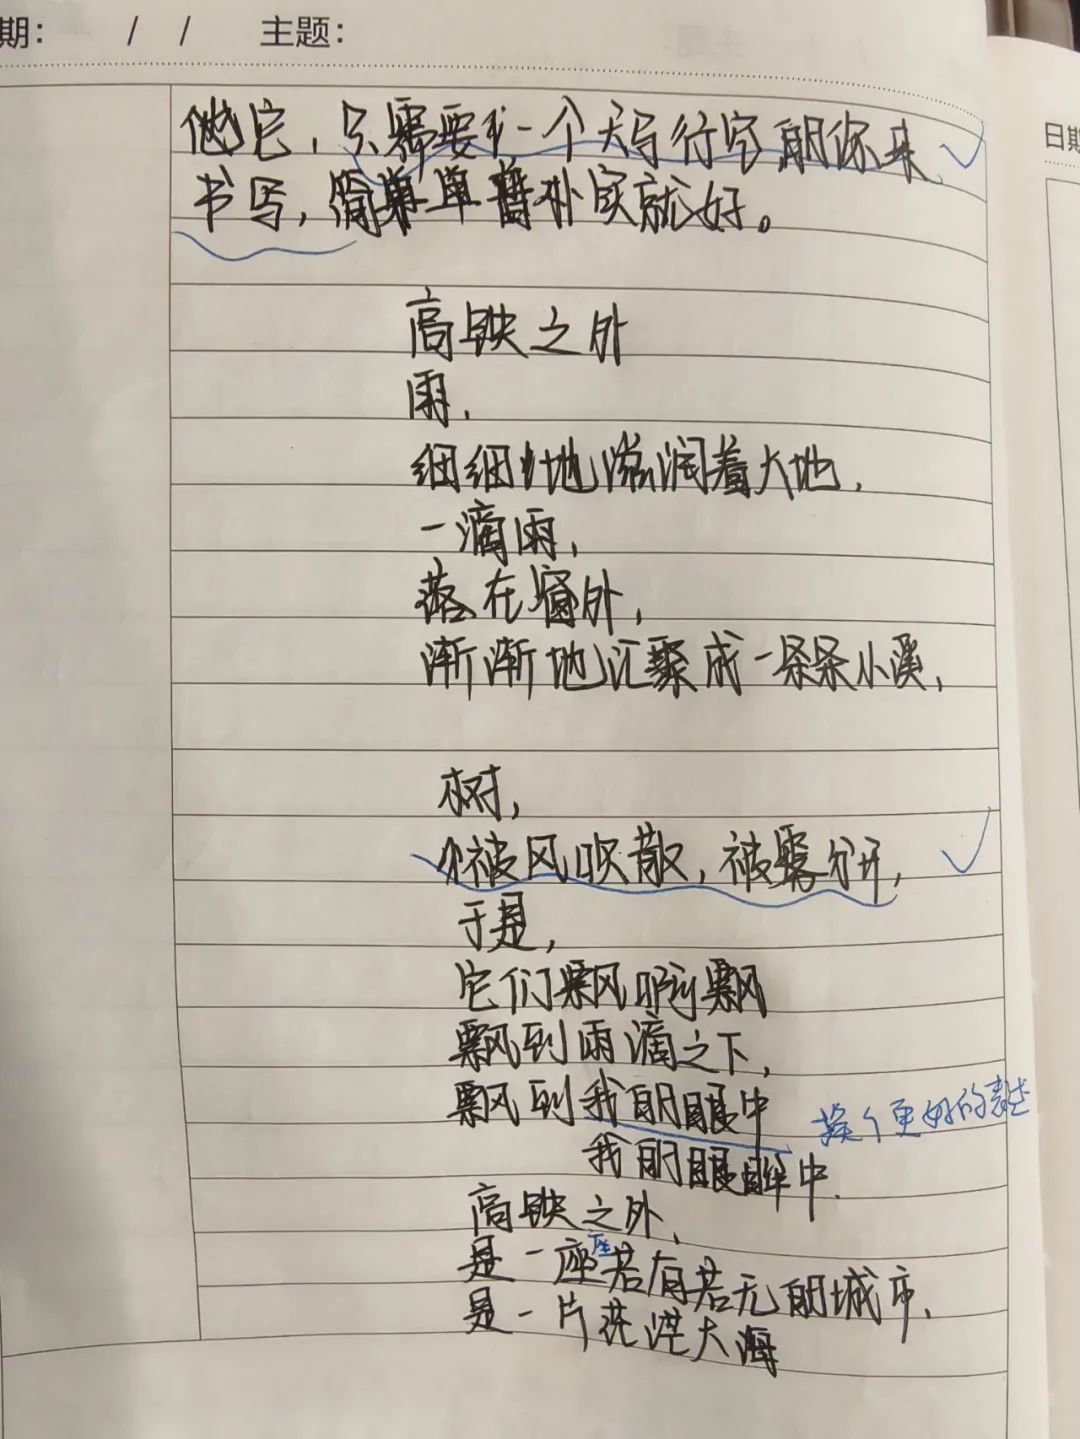 期: / / 主题:
日期
他它，只需要一个大写行字的你来
书写，简单单普朴实就好。
高铁之外
雨，
细细地滋润着大地，
一滴雨，
落在窗外，
渐渐地汇聚成一条条小溪，
树，
被风吹散，被雾分开，
于是，
它们飘啊飘
飘到雨滴之下，
飘到我的眼中
换个更好的表述
我的眼眸中.
高铁之外，
是一座座若有若无的城市，
是一片茫茫大海